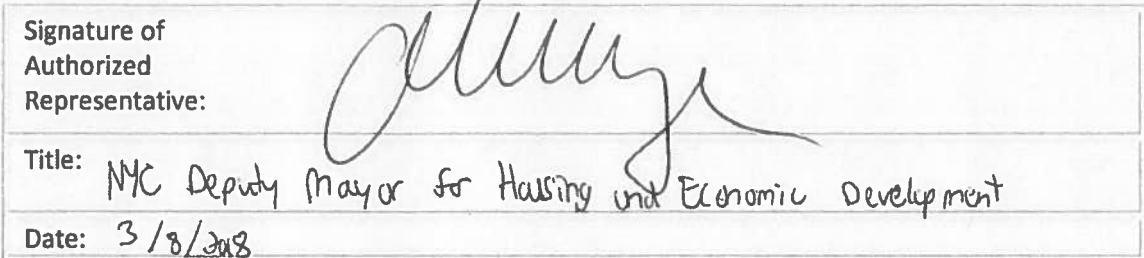 Signature of
Authorized
Representative:
Title: NYC Deputy Mayor for Housing and Economic Development
Date: 3/8/2018